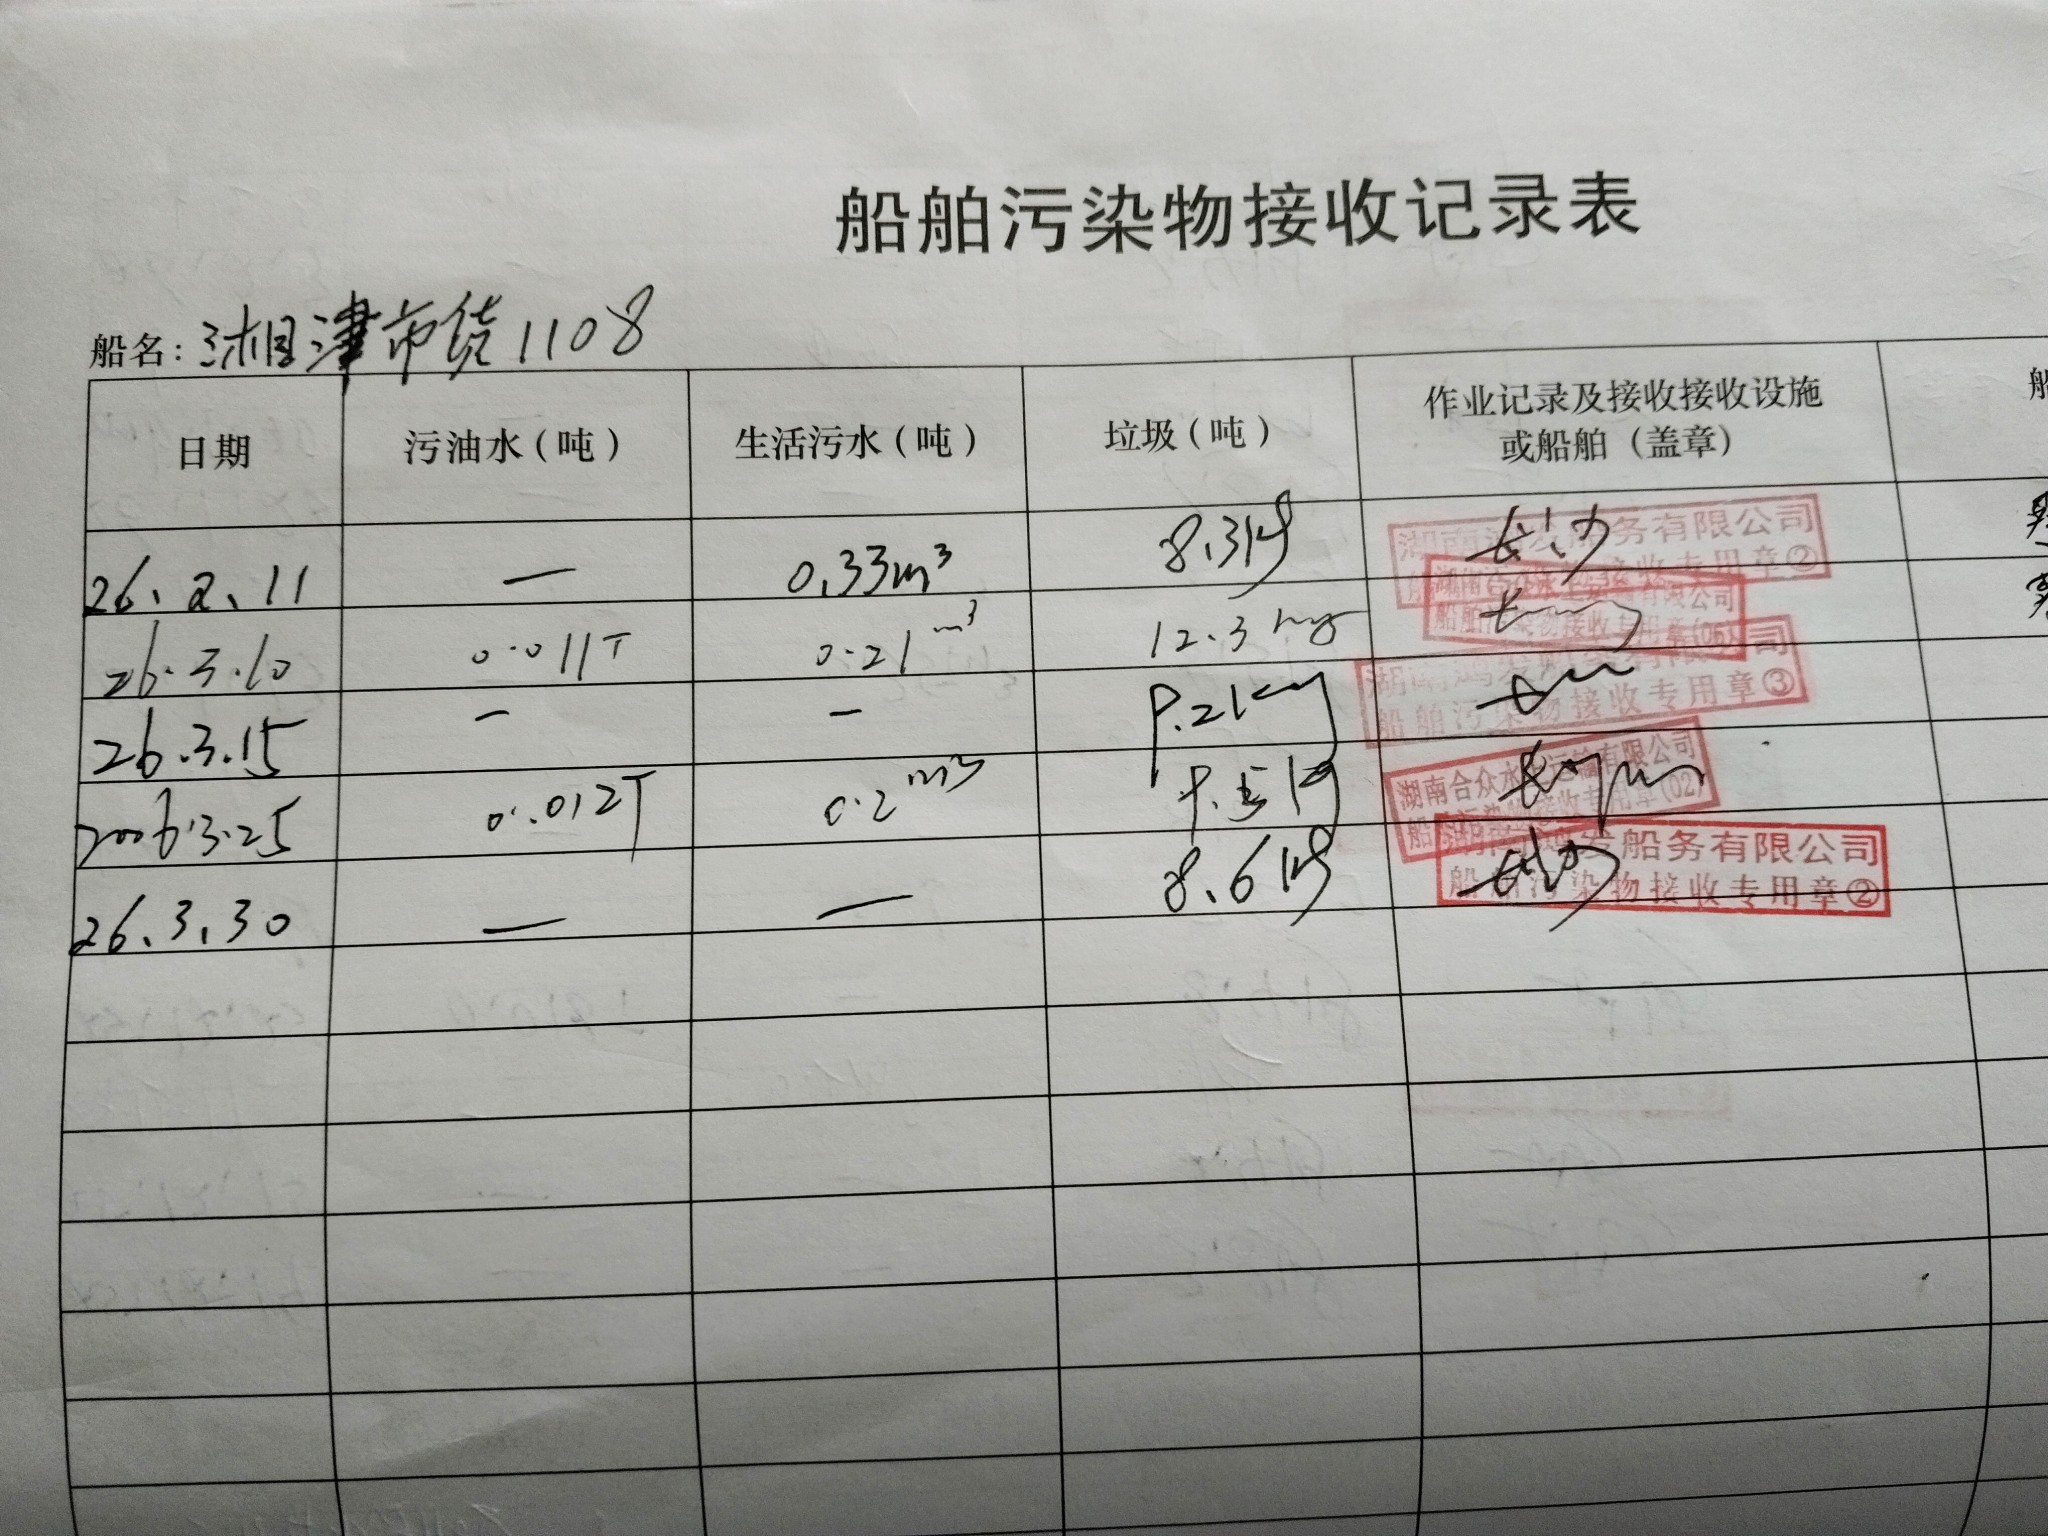 船舶污染物接收记录表
船名：湘津市货1108
日期 污油水（吨） 生活污水（吨） 垃圾（吨） 作业记录及接收接收设施或船舶（盖章） 船
26.2.11 — 0.33m³ 8.3kg 长沙
湖南鸿发船务有限公司
船舶污染物接收专用章②
26.3.10 0.011T 0.21m³ 12.3kg
湖南合众水上运输有限公司
船舶污染物接收专用章(06)
26.3.15 — — 9.2kg
湖南鸿发船务有限公司
船舶污染物接收专用章③
2006.3.25 0.012T 0.2m³ 9.5kg
湖南合众水上运输有限公司
船舶污染物接收专用章(02)
26.3.30 — — 8.6kg 长沙
湖南鸿发船务有限公司
船舶污染物接收专用章②